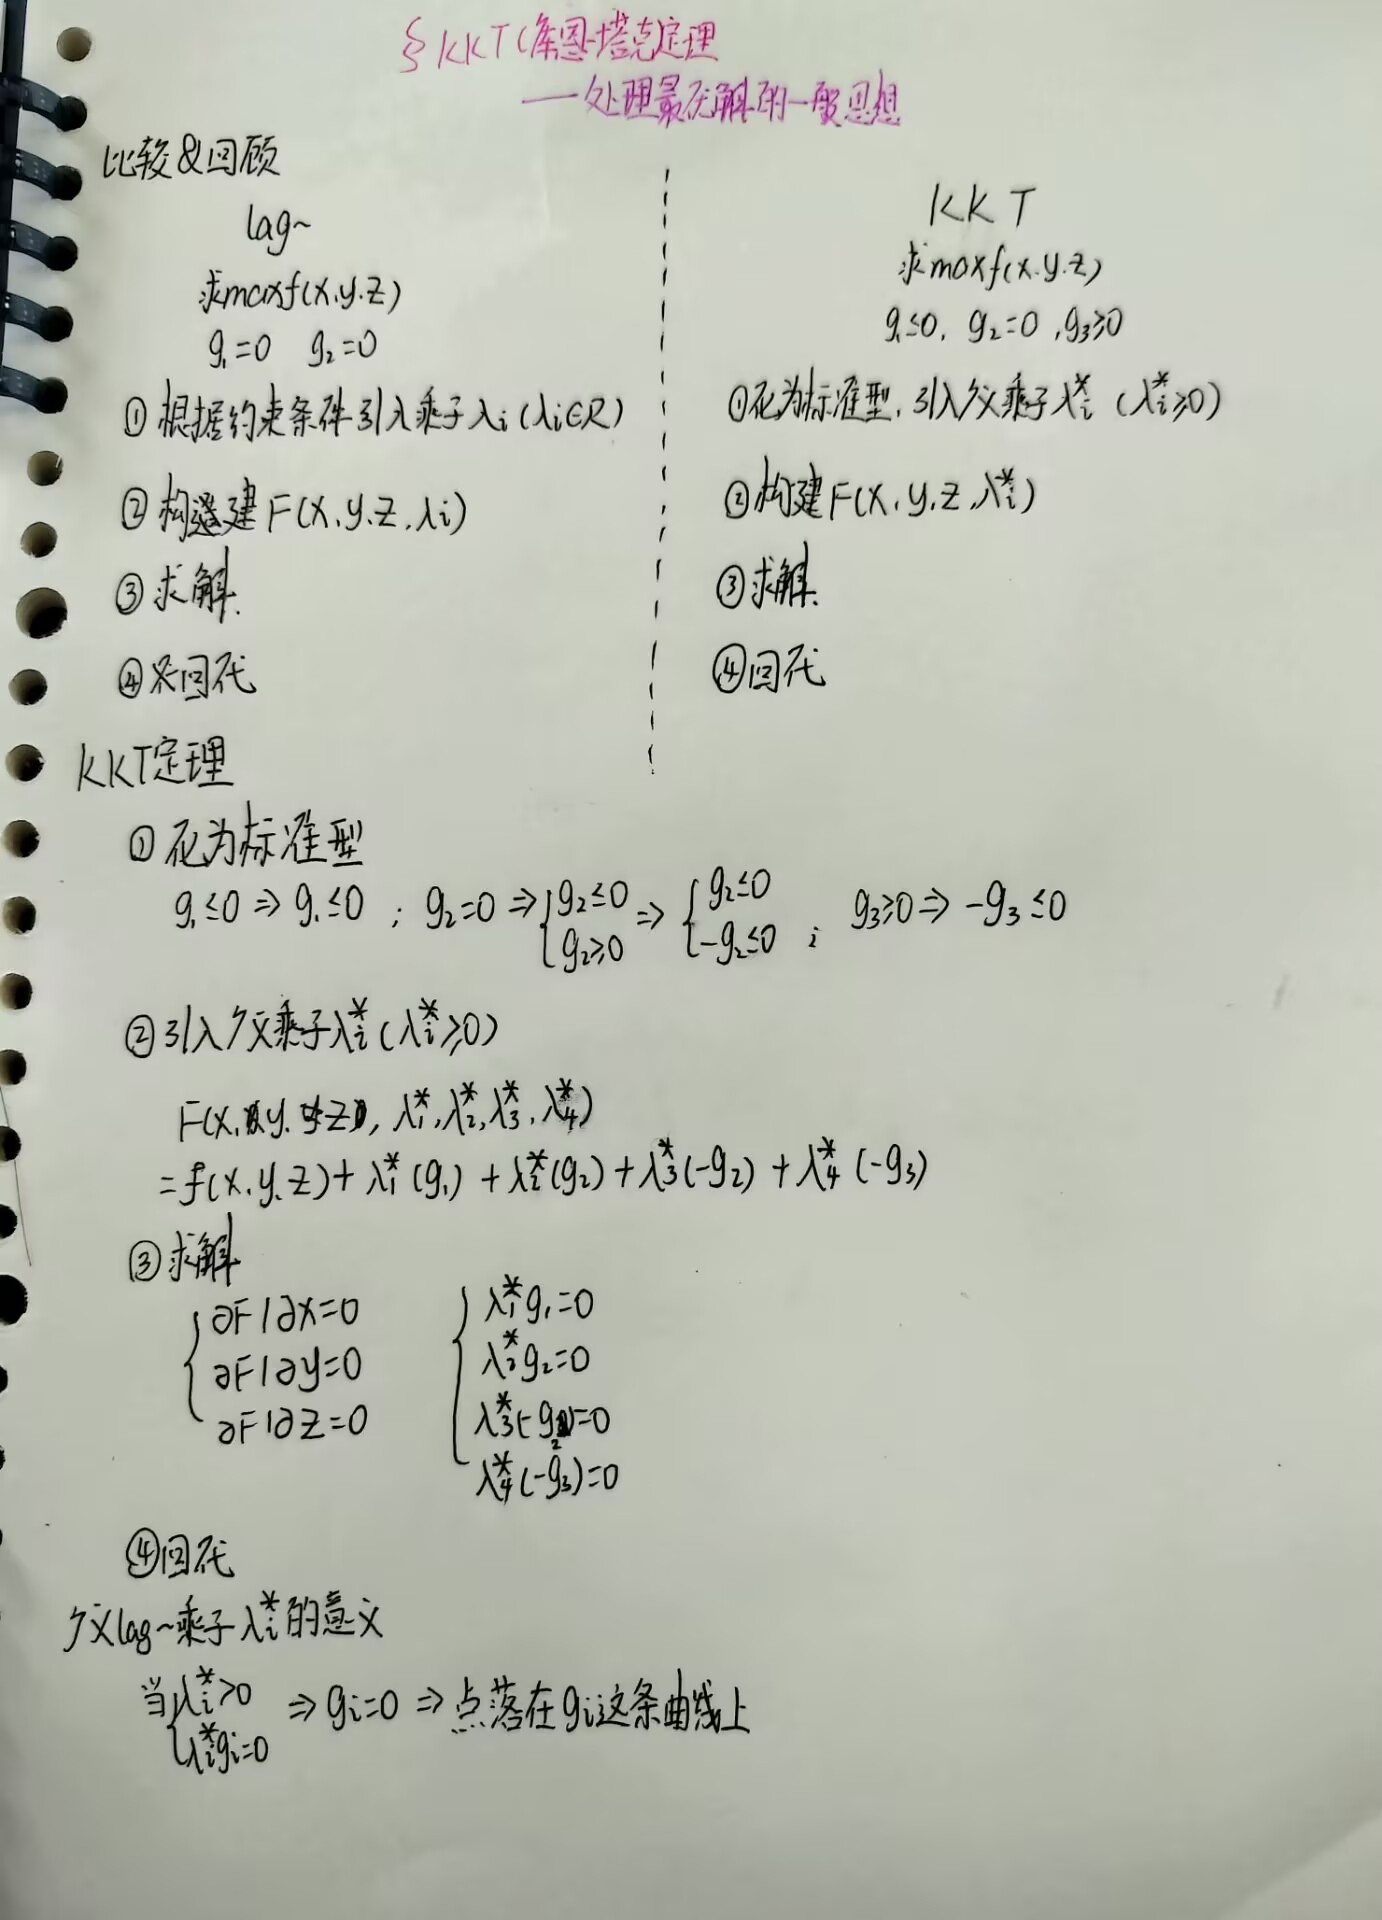 § KKT(库恩-塔克定理
——处理最优解的一般思想
比较&回顾
lag~
求maxf(x.y.z)
g₁=0 g₂=0
①根据约束条件引入乘子λi(λi∈R)
②构建F(x.y.z.λi)
③求解.
④回代
KKT
求maxf(x.y.z)
g₁≤0. g₂=0 ,g₃≥0
①化为标准型.引入广义乘子λi*(λi*≥0)
②构建F(x.y.z.λi*)
③求解.
④回代
KKT定理
①化为标准型
g₁≤0⇒g₁≤0 ; g₂=0⇒{g₂≤0 g₂≥0 ⇒ {g₂≤0 -g₂≤0 ; g₃≥0⇒-g₃≤0
②引入广义乘子λi*(λi*≥0)
F(x.y.z, λ₁*,λ₂*,λ₃*,λ₄*)
=f(x.y.z)+λ₁*(g₁)+λ₂*(g₂)+λ₃*(-g₂)+λ₄*(-g₃)
③求解
∂F/∂x=0
∂F/∂y=0
∂F/∂z=0
λ₁*g₁=0
λ₂*g₂=0
λ₃*(-g₂)=0
λ₄*(-g₃)=0
④回代
广义lag~乘子λi*的意义
当{λi*>0 λi*gi=0 ⇒gi=0⇒点落在gi这条曲线上